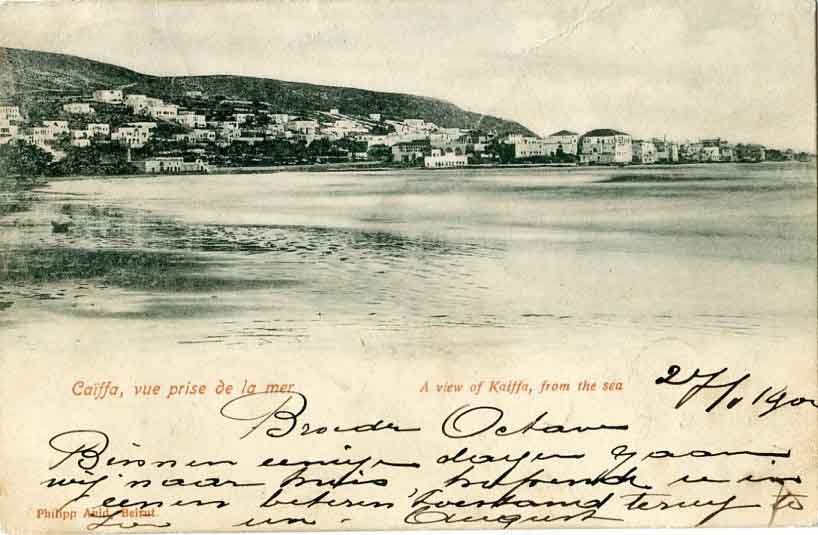 Caïffa, vue prise de la mer
A view of Kaiffa, from the sea
Broeder Octave
Binnen eenige dagen gaan
wij naar huis, hopende u in
eenen beteren toestand terug te
zien. August
Philipp Auld, Beirut.